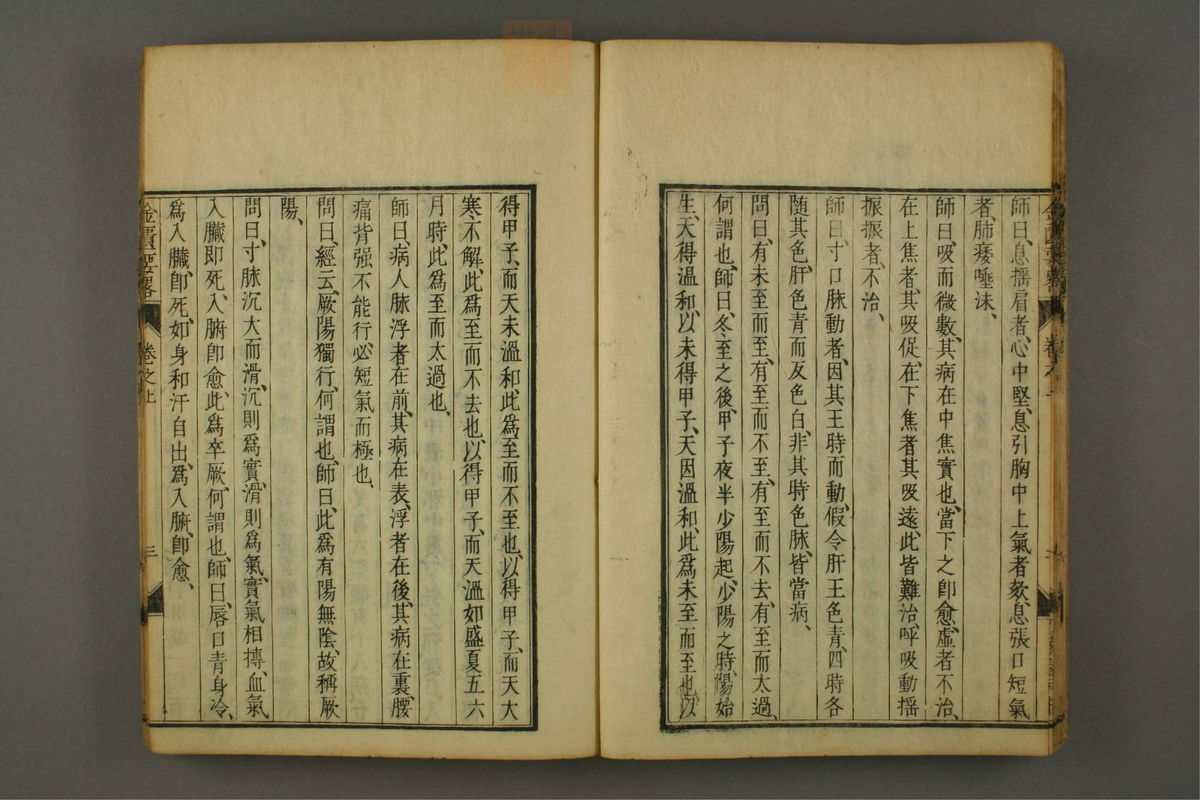 師曰、息搖肩者、心中堅、息引胸中上氣者欬、息張口短氣
者、肺痿唾沫、
師曰、吸而微數、其病在中焦實也、當下之卽愈、虛者不治、
在上焦者、其吸促、在下焦者、其吸遠、此皆難治、呼吸動搖
振振者、不治、
師曰、寸口脉動者、因其王時而動、假令肝王色青、四時各
隨其色、肝色青而反色白、非其時色脉、皆當病、
問曰、有未至而至、有至而不至、有至而不去、有至而太過、
何謂也、師曰、冬至之後、甲子夜半少陽起、少陽之時、陽始
生、天得溫和、以未得甲子、天因溫和、此爲未至而至也、以
得甲子、而天未溫和、此爲至而不至也、以得甲子、而天大
寒不解、此爲至而不去也、以得甲子、而天溫如盛夏五六
月時、此爲至而太過也、
師曰、病人脉浮者在前、其病在表、浮者在後、其病在裏、腰
痛背强不能行、必短氣而極也、
問曰、經云、厥陽獨行、何謂也、師曰、此爲有陽無陰、故稱厥
陽、
問曰、寸脉沉大而滑、沉則爲實、滑則爲氣、實氣相搏、血氣
入臟卽死、入腑卽愈、此爲卒厥、何謂也、師曰、唇口青、身冷、
爲入臟、卽死、如身和汗自出、爲入腑、卽愈、
金匱要畧 卷之上 三